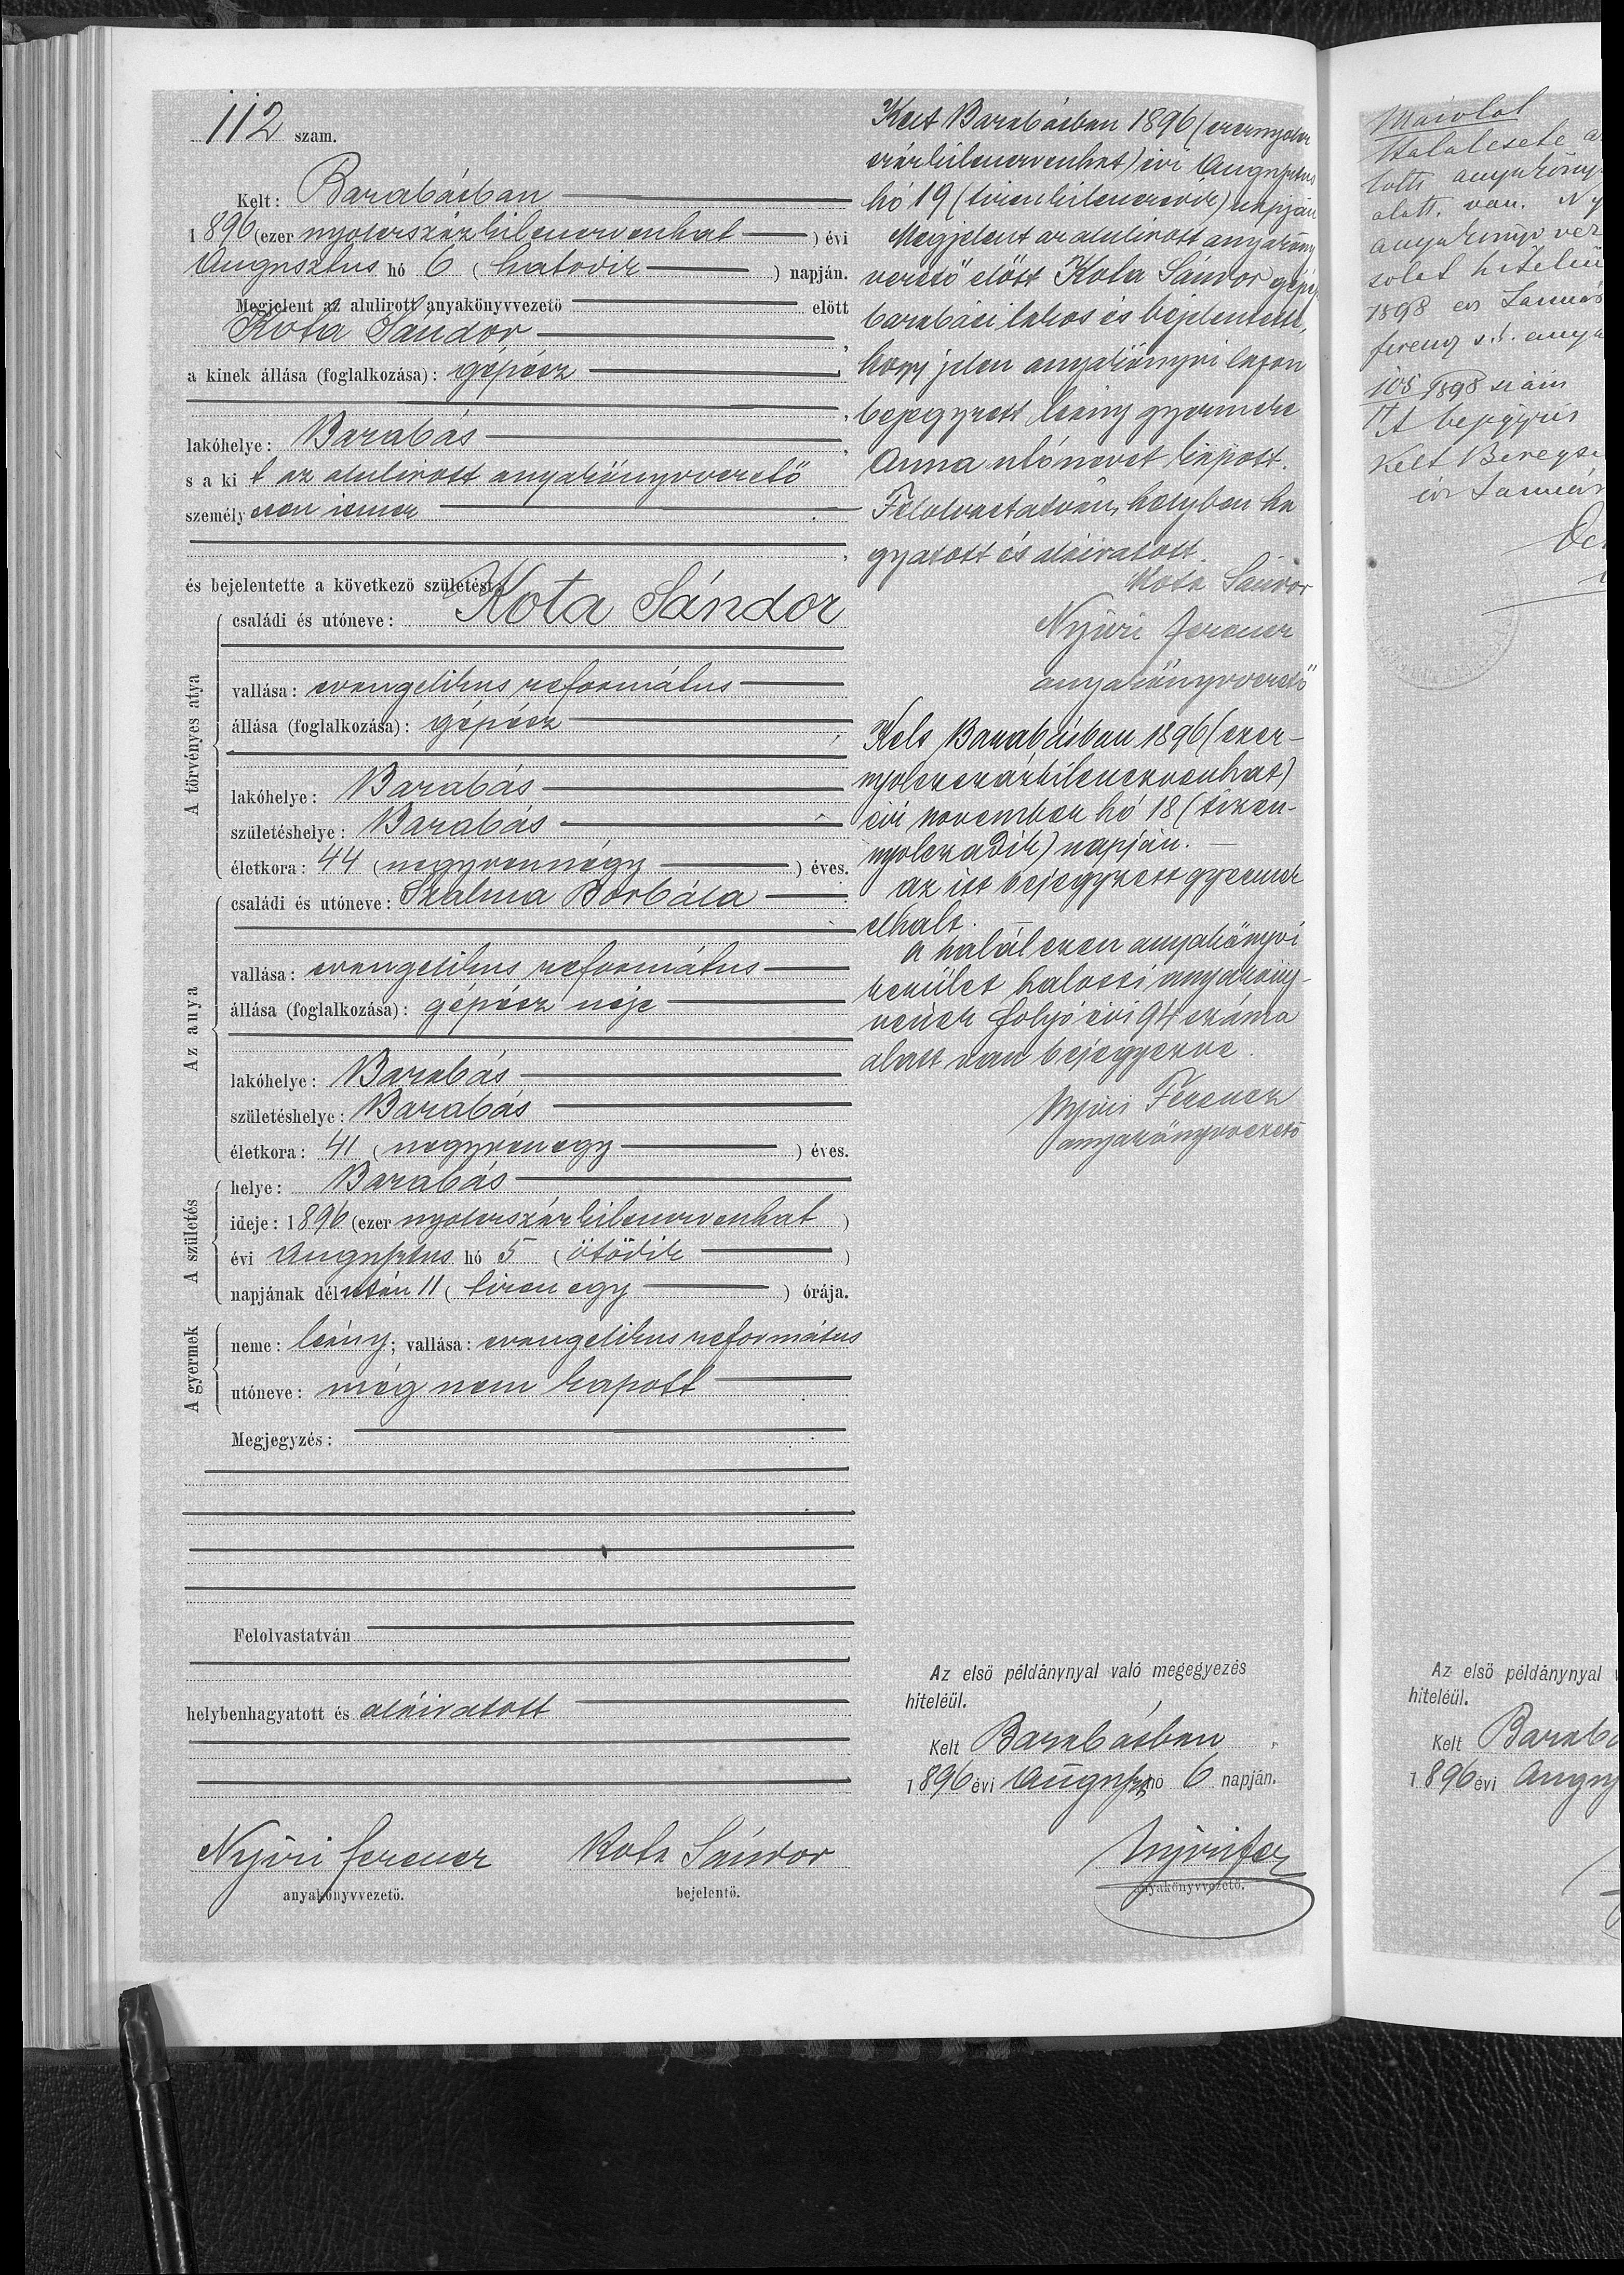 112 szam.
Kelt: Barabásban
1896 (ezer nyolcszázkilencvenhat ) évi
Augusztus hó 6 ( hatodik ) napján.
Megjelent az alulirott anyakönyvvezető előtt
Kota Sándor
a kinek állása (foglalkozása): gépész
lakóhelye: Barabás
s a ki t az alulirott anyakönyvvezető
személyesen ismer
és bejelentette a következő születést:
A törvényes atya
családi és utóneve: Kota Sándor
vallása: evangelikus református
állása (foglalkozása): gépész
lakóhelye: Barabás
születéshelye: Barabás
életkora: 44 (negyvennégy ) éves.
Az anya
családi és utóneve: Szalma Borbála
vallása: evangelikus református
állása (foglalkozása): gépész neje
lakóhelye: Barabás
születéshelye: Barabás
életkora: 41 (negyvenegy ) éves.
A születés
helye: Barabás
ideje: 1896 (ezer nyolcszázkilencvenhat )
évi Augusztus hó 5 (ötödik )
napjának délután 11 ( tizenegy ) órája.
A gyermek
neme: leány; vallása: evangelikus református
utóneve: még nem kapott
Megjegyzés:
Felolvastatván
helybenhagyatott és aláiratott
Nyiri Ferencz Kota Sándor
anyakönyvvezető. bejelentő.
Kelt Barabásban 1896 (ezernyolcz
százkilenczvenhat) évi Augusztus
hó 19 (tizenkilenczedik) napján
Megjelent az alulirott anyaköny
vezető előtt Kota Sándor gépész
barabási lakos és bejelentette,
hogy jelen anyakönyvi lapon
bejegyzett leány gyermeke
Anna utónevet kapott.
Felolvastatván, helyben ha
gyatott és aláiratott.
Kota Sándor
Nyiri Ferencz
anyakönyvvezető
Kelt Barabásban 1896 (ezer-
nyolczszázkilenczvenhat)
évi november hó 18 (tizen-
nyolczadik) napján.
az itt bejegyzett gyermek
elhalt.
A halál ezen anyakönyvi
kerület halotti anyaköny-
vének folyó évi 94 száma
alatt van bejegyezve.
Nyiri Ferencz
anyakönyvvezető
Az első példánynyal való megegyezés
hiteléül.
Kelt Barabásban
1896 évi Auguszt hó 6 napján.
Nyiri Fer
anyakönyvvezető.
Másolat
Halálesete a
alatt. van. Ny
1898 év Január
108/1898 szám
A bejegyzés
Kelt Beregsz
év Január
Az első példánynyal
hiteléül.
Kelt Barabá
1896 évi Augu